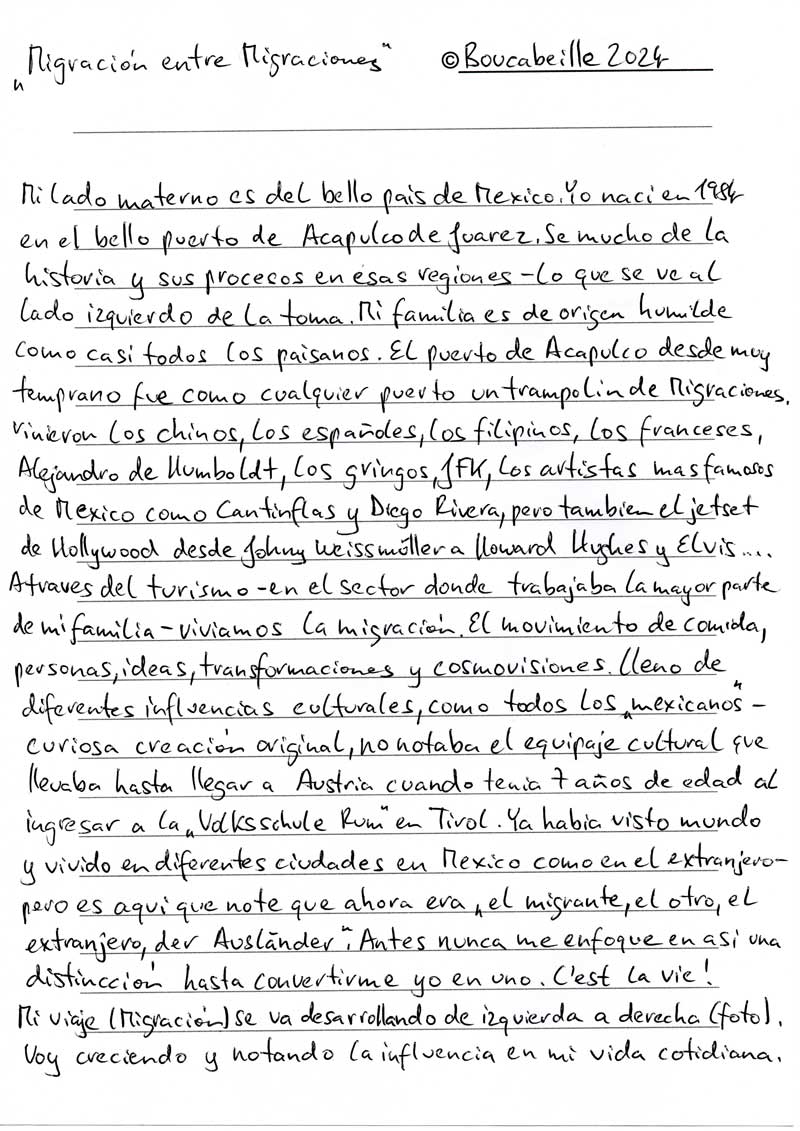 „Migración entre Migraciones“ ©Boucabeille 2024
Mi lado materno es del bello pais de Mexico. Yo naci en 1984
en el bello puerto de Acapulco de Juarez. Se mucho de la
historia y sus procecos en esas regiones - lo que se ve al
lado izquierdo de la toma. Mi familia es de origen humilde
como casi todos los paisanos. El puerto de Acapulco desde muy
temprano fue como cualquier puerto un trampolin de Migraciones.
Vinieron los chinos, los españoles, los filipinos, los franceses,
Alejandro de Humboldt, los gringos, JFK, los artistas mas famosos
de Mexico como Cantinflas y Diego Rivera, pero tambien el jetset
de Hollywood desde Johny Weissmüller a Howard Hughes y Elvis....
Atraves del turismo - en el sector donde trabajaba la mayor parte
de mi familia - viviamos la migración. El movimiento de comida,
personas, ideas, transformaciones y cosmovisiones. Lleno de
diferentes influencias culturales, como todos los „mexicanos“ -
curiosa creación original, no notaba el equipaje cultural que
llevaba hasta llegar a Austria cuando tenia 7 años de edad al
ingresar a la „Volksschule Rum“ en Tirol. Ya habia visto mundo
y vivido en diferentes ciudades en Mexico como en el extranjero -
pero es aqui que note que ahora era „el migrante, el otro, el
extranjero, der Ausländer“. Antes nunca me enfoque en asi una
distincción hasta convertirme yo en uno. C'est la vie!
Mi viaje (Migración) se va desarrollando de izquierda a derecha (foto).
Voy creciendo y notando la influencia en mi vida cotidiana.